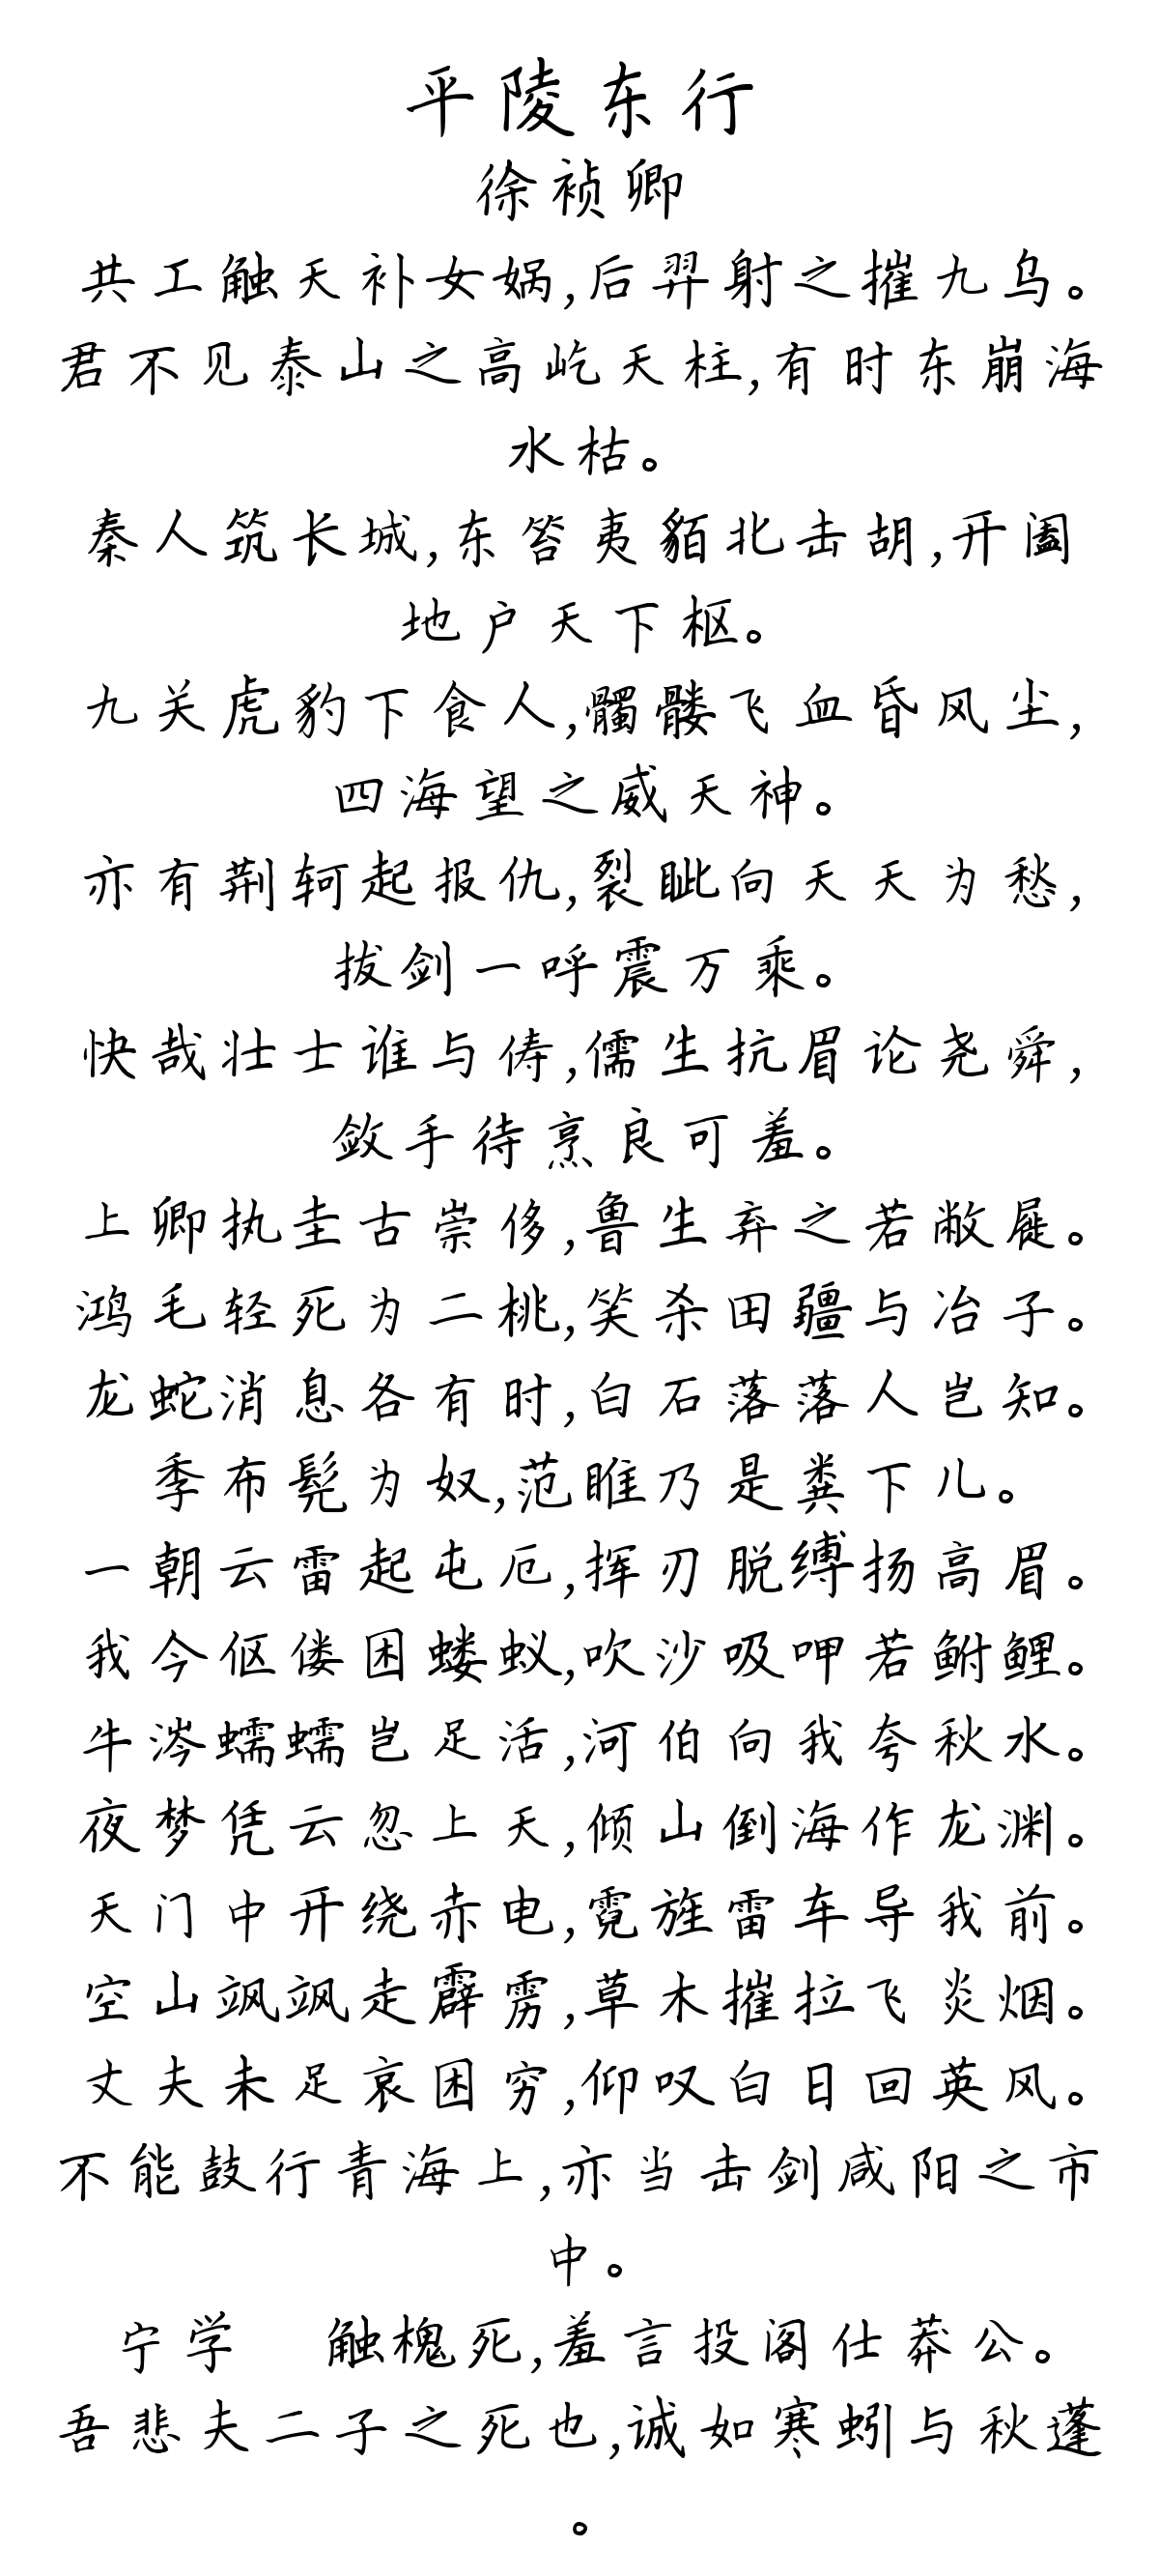 平陵东行
徐祯卿
共工触天补女娲,后羿射之摧九乌。
君不见泰山之高屹天柱,有时东崩海
水枯。
秦人筑长城,东笞夷貊北击胡,开阖
地户天下枢。
九关虎豹下食人,髑髅飞血昏风尘,
四海望之威天神。
亦有荆轲起报仇,裂眦向天天为愁,
拔剑一呼震万乘。
快哉壮士谁与俦,儒生抗眉论尧舜,
敛手待烹良可羞。
上卿执圭古崇侈,鲁生弃之若敝屣。
鸿毛轻死为二桃,笑杀田疆与冶子。
龙蛇消息各有时,白石落落人岂知。
季布髡为奴,范睢乃是粪下儿。
一朝云雷起屯厄,挥刃脱缚扬高眉。
我今伛偻困蝼蚁,吹沙吸呷若鲋鲤。
牛涔蠕蠕岂足活,河伯向我夸秋水。
夜梦凭云忽上天,倾山倒海作龙渊。
天门中开绕赤电,霓旌雷车导我前。
空山飒飒走霹雳,草木摧拉飞炎烟。
丈夫未足哀困穷,仰叹白日回英风。
不能鼓行青海上,亦当击剑咸阳之市
中。
宁学　触槐死,羞言投阁仕莽公。
吾悲夫二子之死也,诚如寒蚓与秋蓬
。